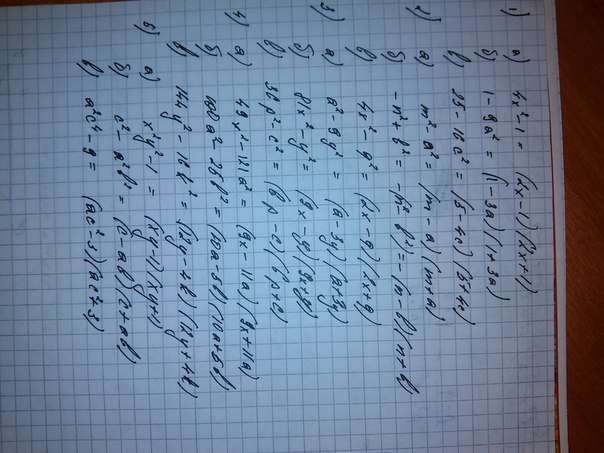 1) а) 4x²-1 = (2x-1)(2x+1)
б) 1-9a² = (1-3a)(1+3a)
в) 25-16c² = (5-4c)(5+4c)
2) а) m²-a² = (m-a)(m+a)
б) -n²+b² = -(n²-b²) = -(n-b)(n+b)
в) 4x²-g² = (2x-g)(2x+g)
3) а) a²-9y² = (a-3y)(a+3y)
б) 81x²-y² = (9x-y)(9x+y)
в) 36p²-c² = (6p-c)(6p+c)
4) а) 49x²-121a² = (9x-11a)(9x+11a)
б) 100a²-25b² = (10a-5b)(10a+5b)
в) 144y²-16k² = (12y-4k)(12y+4k)
5) а) x²y²-1 = (xy-1)(xy+1)
б) c²-a²b² = (c-ab)(c+ab)
в) a²c⁴-9 = (ac²-3)(ac²+3)